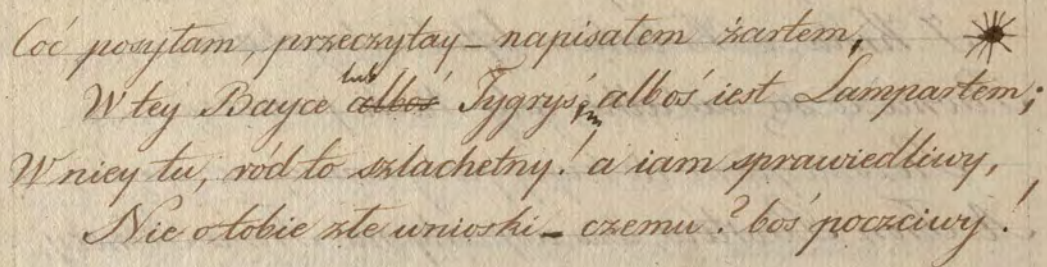 Coć posyłam, przeczytay – napisałem żartem,
W tey Bayce lub Tygryś, alboś iest Lampartem;
W niey tu, ród to szlachetny! a iam sprawiedliwy,
Nie o tobie złe wnioski – czemu? boś poczciwy!